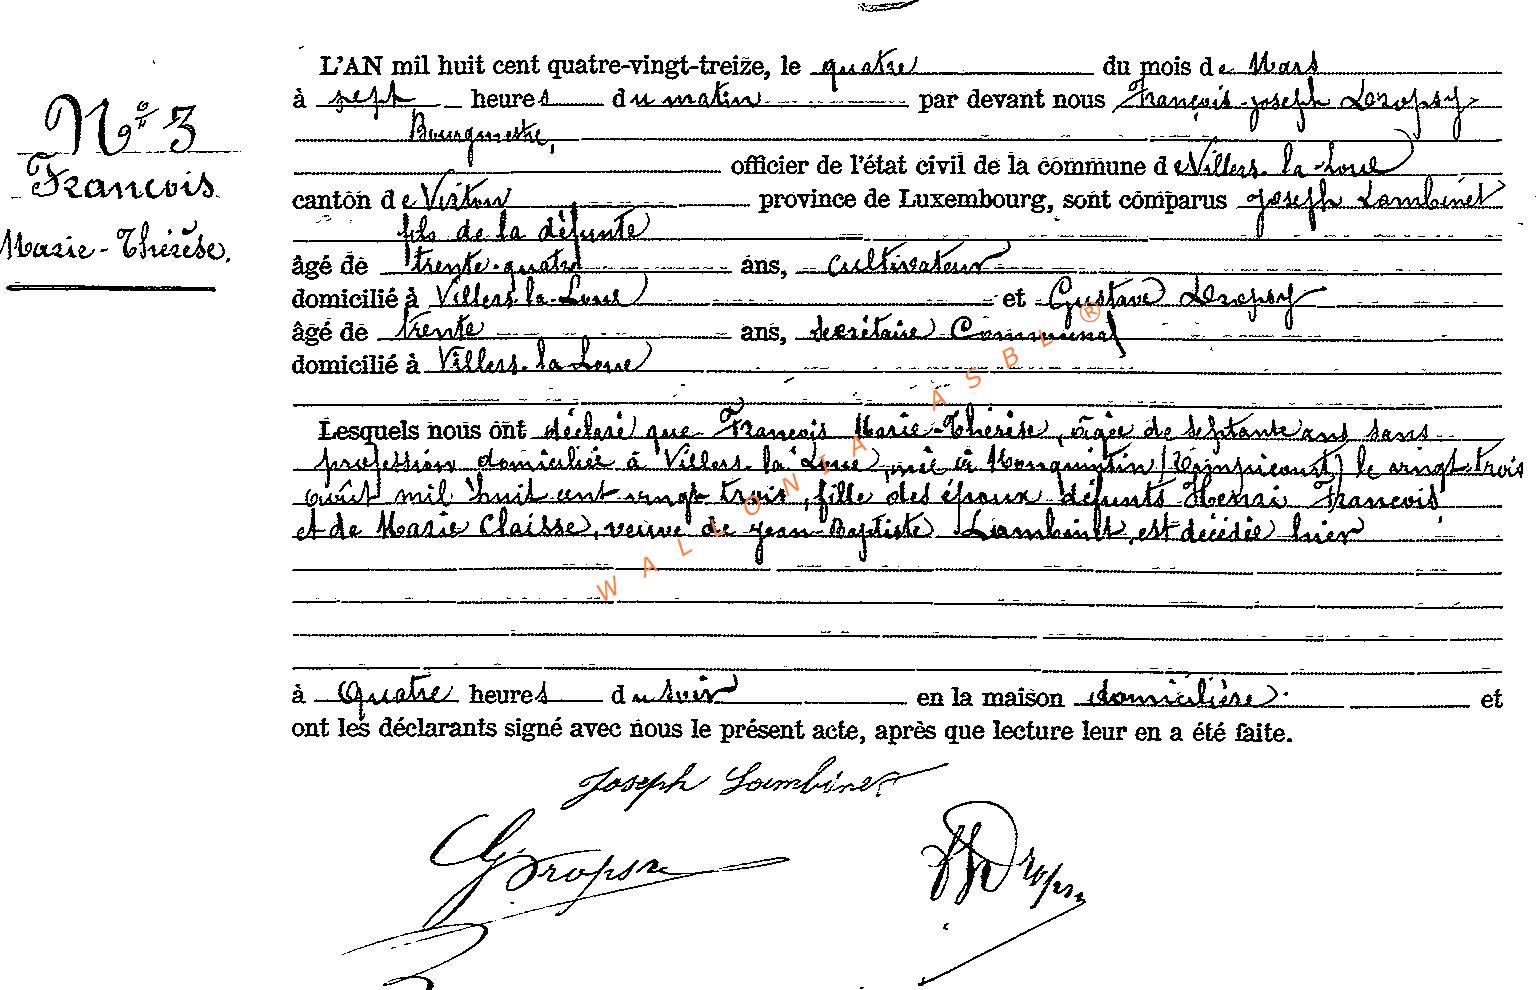 N° 3
François
Marie-Thérèse.
L'AN mil huit cent quatre-vingt-treize, le quatre du mois de Mars
à sept heures du matin par devant nous François-joseph Dropsy
Bourgmestre,
officier de l'état civil de la commune de Villers-la-Loue
canton de Virton province de Luxembourg, sont comparus joseph Lambinet
fils de la défunte
âgé de trente-quatre ans, cultivateur
domicilié à Villers-la-Loue et Gustave Dropsy
âgé de trente ans, secrétaire Communal
domicilié à Villers-la-Loue
Lesquels nous ont déclaré que François Marie-Thérèse, âgée de septante ans sans
profession domiciliée à Villers-la-Loue, née à Monquintin le vingt-trois
août mil huit cent vingt trois, fille des époux défunts Henri François
et de Marie Claisse, veuve de jean-Baptiste Lambinet, est décédée hier
à Quatre heures du soir en la maison domicilière et
ont les déclarants signé avec nous le présent acte, après que lecture leur en a été faite.
Joseph Lambinet
G Dropsy
FJ Dropsy
WALLONIA ASBL ®